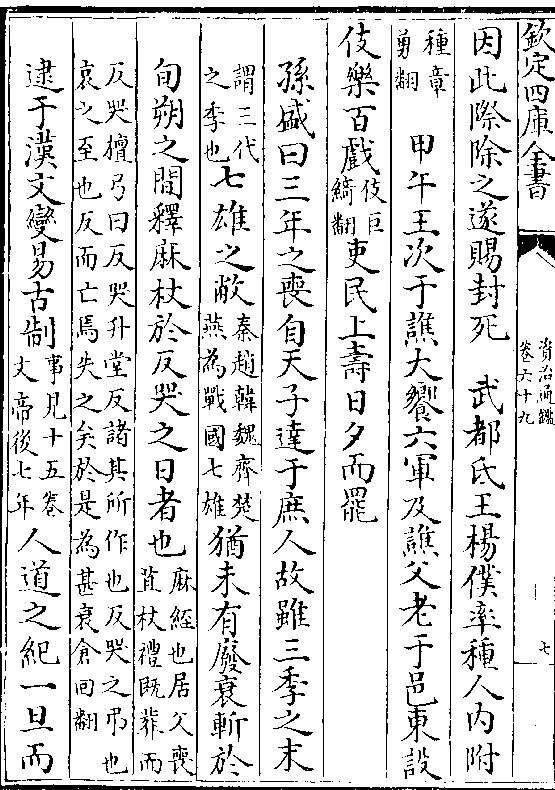 欽定四庫全書
資治通鑑
卷六十九
七
因此際除之遂賜封死　武都氐王楊僕率種人内附
種章
勇翻
甲午王次于譙大饗六軍及譙父老于邑東設
伎樂百戲
伎巨
綺翻
吏民上壽日夕而罷
孫盛曰三年之喪自天子達于庶人故雖三季之末
謂三代
之季也
七雄之敝
秦趙韓魏齊楚
燕為戰國七雄
猶未有廢衰斬於
旬朔之間釋麻杖於反哭之日者也
麻絰也居父喪
苴杖禮既葬而
反哭檀弓曰反哭升堂反諸其所作也反哭之弔也
哀之至也反而亡焉失之矣於是為甚衰倉回翻
逮于漢文變易古制
事見十五卷
文帝後七年
人道之紀一旦而